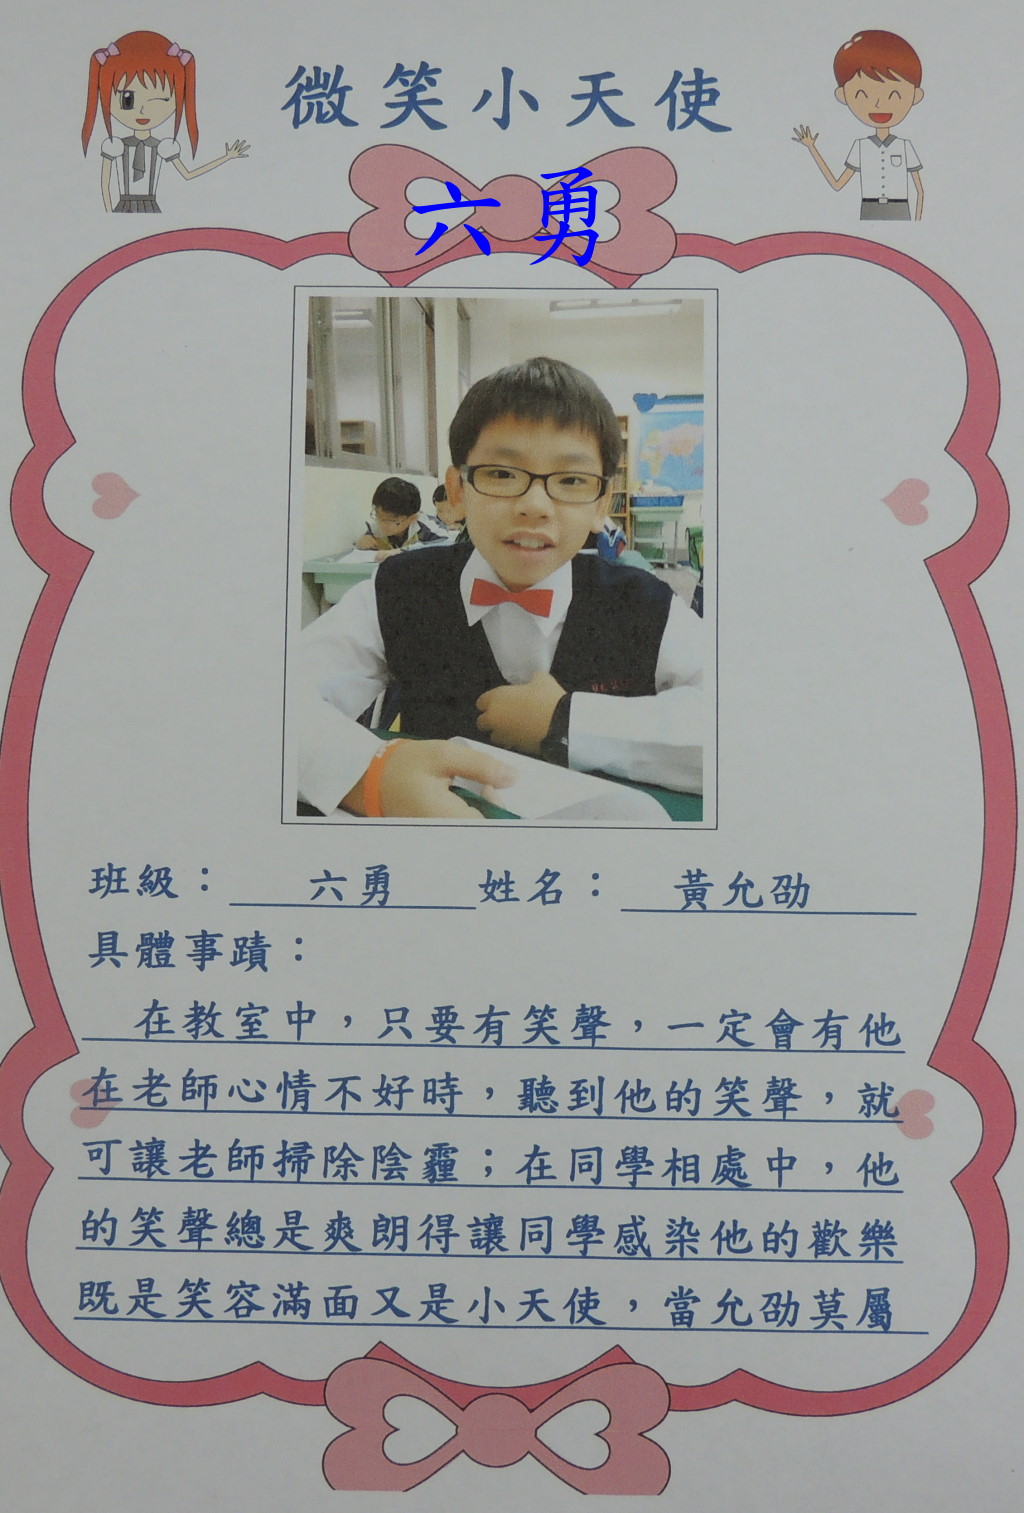 微笑小天使
六勇
班級：六勇 姓名：黃允劭
具體事蹟：
在教室中，只要有笑聲，一定會有他
在老師心情不好時，聽到他的笑聲，就
可讓老師掃除陰霾；在同學相處中，他
的笑聲總是爽朗得讓同學感染他的歡樂
既是笑容滿面又是小天使，當允劭莫屬